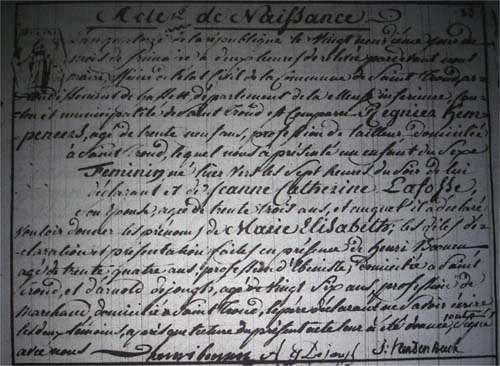 Acte de Naissance
L'an quatorze de la république le vingt neuvième jour du
mois de frimaire à deux heures de relevée pardevant nous
maire, officier de l'état civil de la Commune de Saint Trond ar-
rondissement de hasselt département de la Meuse inférieure, can-
ton et municipalité de Saint Trond est comparu Regnier Kem-
peneers, agé de trente neuf ans, profession de tailleur domicilié
à Saint Trond, lequel nous a présenté un enfant du Sexe
Feminin, né hier vers les Sept heures du Soir de lui
déclarant et de Jeanne Catherine Lafosse,
son épouse, agée de trente trois ans, et auquel il a déclaré
vouloir donner les prénoms de Marie Elisabeth, les dites dé-
claration et présentation faites en présence de henri
agé de trente quatre ans, profession d'Ebeniste, domicilié a Saint
Trond, et d'arnold dejongh, agé de vingt Six ans, profession de
Marchand, domicilié a Saint Trond, le père déclarant ne savoir écrire
les deux temoins, après que lecture du présent acte leur a été donnée, ont signé
avec nous
A G Dejongh